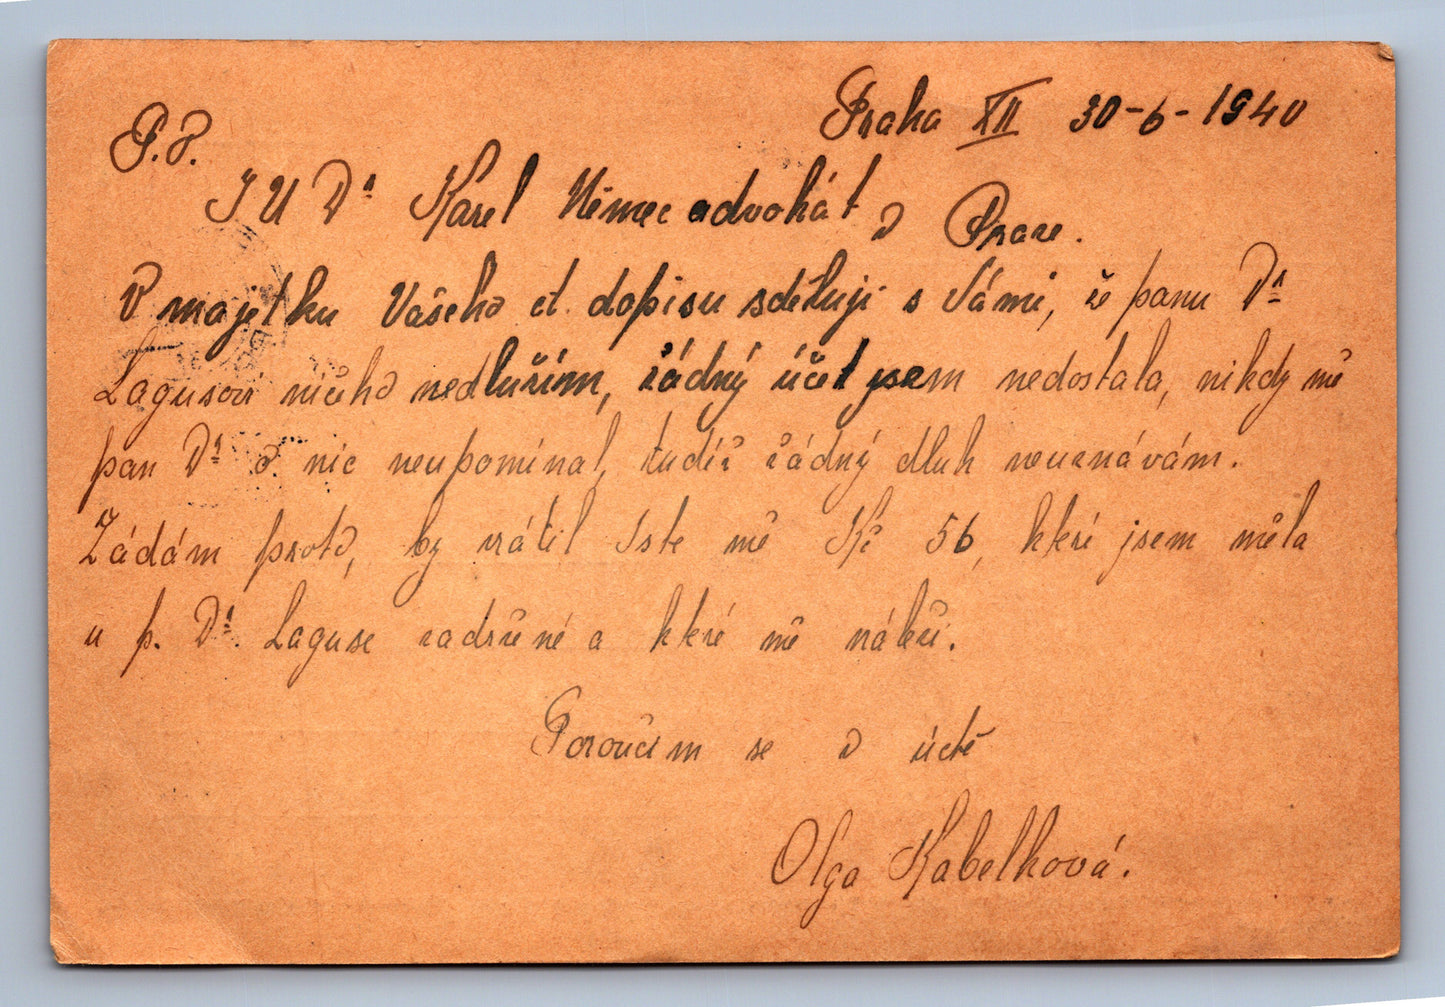 Praha XII 30-6-1940
P. T.
JUDr Karel Němec advokát v Praze.
V majetku Vašeho ct. dopisu sděluji s Vámi, že panu Dr
Lagusovi ničeho nedlužím, žádný účet jsem nedostala, nikdy mě
pan Dr o nic neupomínal, tudíž žádný dluh neuznávám.
Žádám proto, by vrátil jste mě Kč 56, které jsem měla
u p. Dr. Laguse zadržené a které mě náleží.
Poroučím se v úctě
Olga Kabelková.